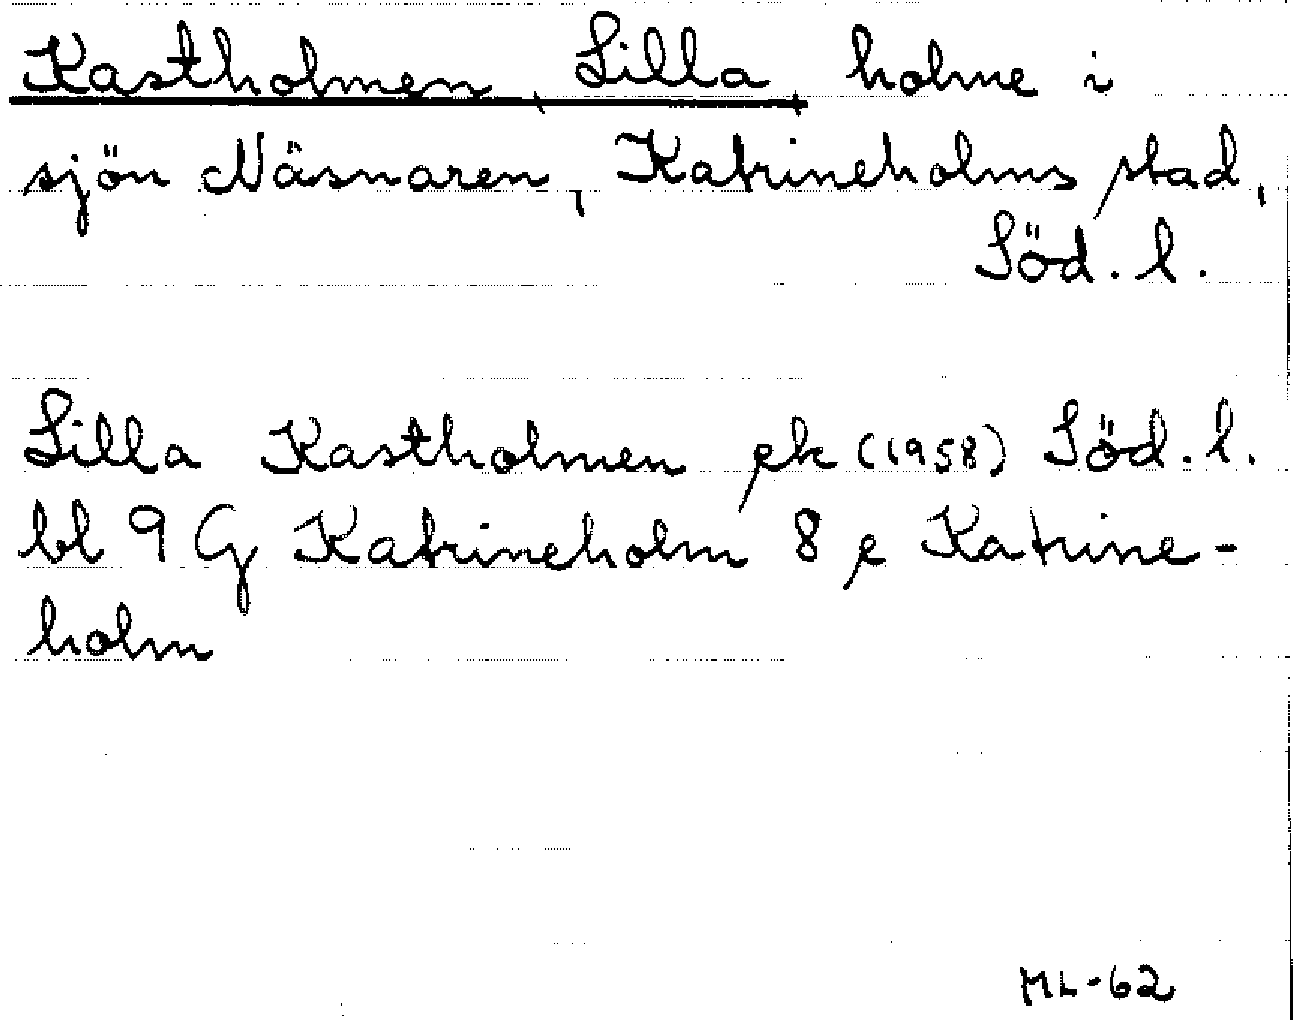 Kastholmen, Lilla, holme i
sjön Näsnaren, Katrineholms stad,
Söd. l.
Lilla Kastholmen ek (1958) Söd. l.
bl 9 G Katrineholm 8 e Katrine-
holm
ML-62